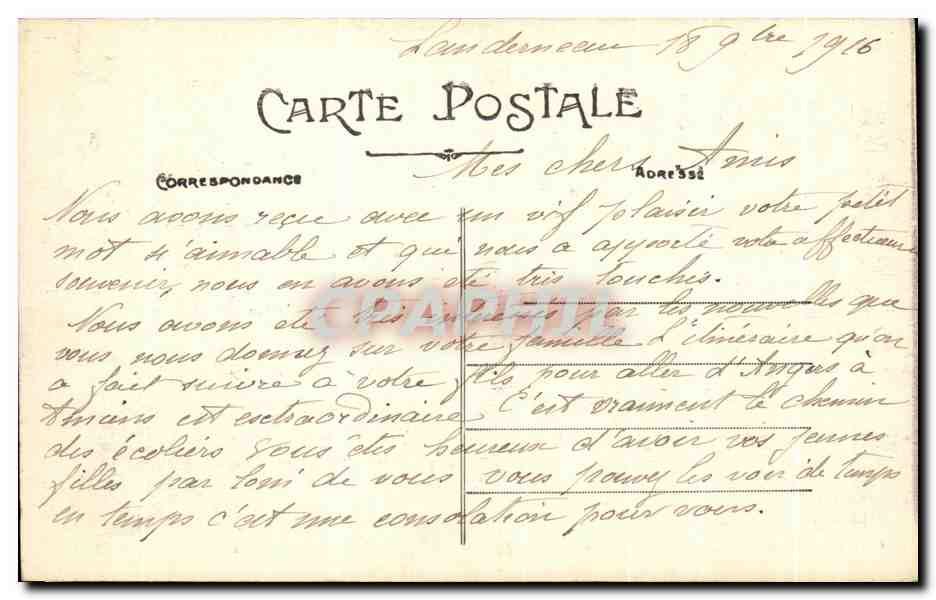 Landerneau 18 9bre 1916
CARTE POSTALE
Mes chers Amis
CORRESPONDANCE
ADRESSE
Nous avons reçue avec un vif plaisir votre petit
mot si aimable et qui nous a apporté votre affectueux
souvenir, nous en avons été très touchés.
Nous avons été très par les nouvelles que
vous nous donnez sur votre famille L'itinéraire qu'on
a fait suivre à votre fils pour aller d'Angers à
Amiens est esctraordinaire C'est vraiment le chemin
des écoliers Vous êtes heureux d'avoir vos jeunes
filles pas loin de vous vous pouvez les voir de temps
en temps c'est une consolation pour vous.
CPAPHIL